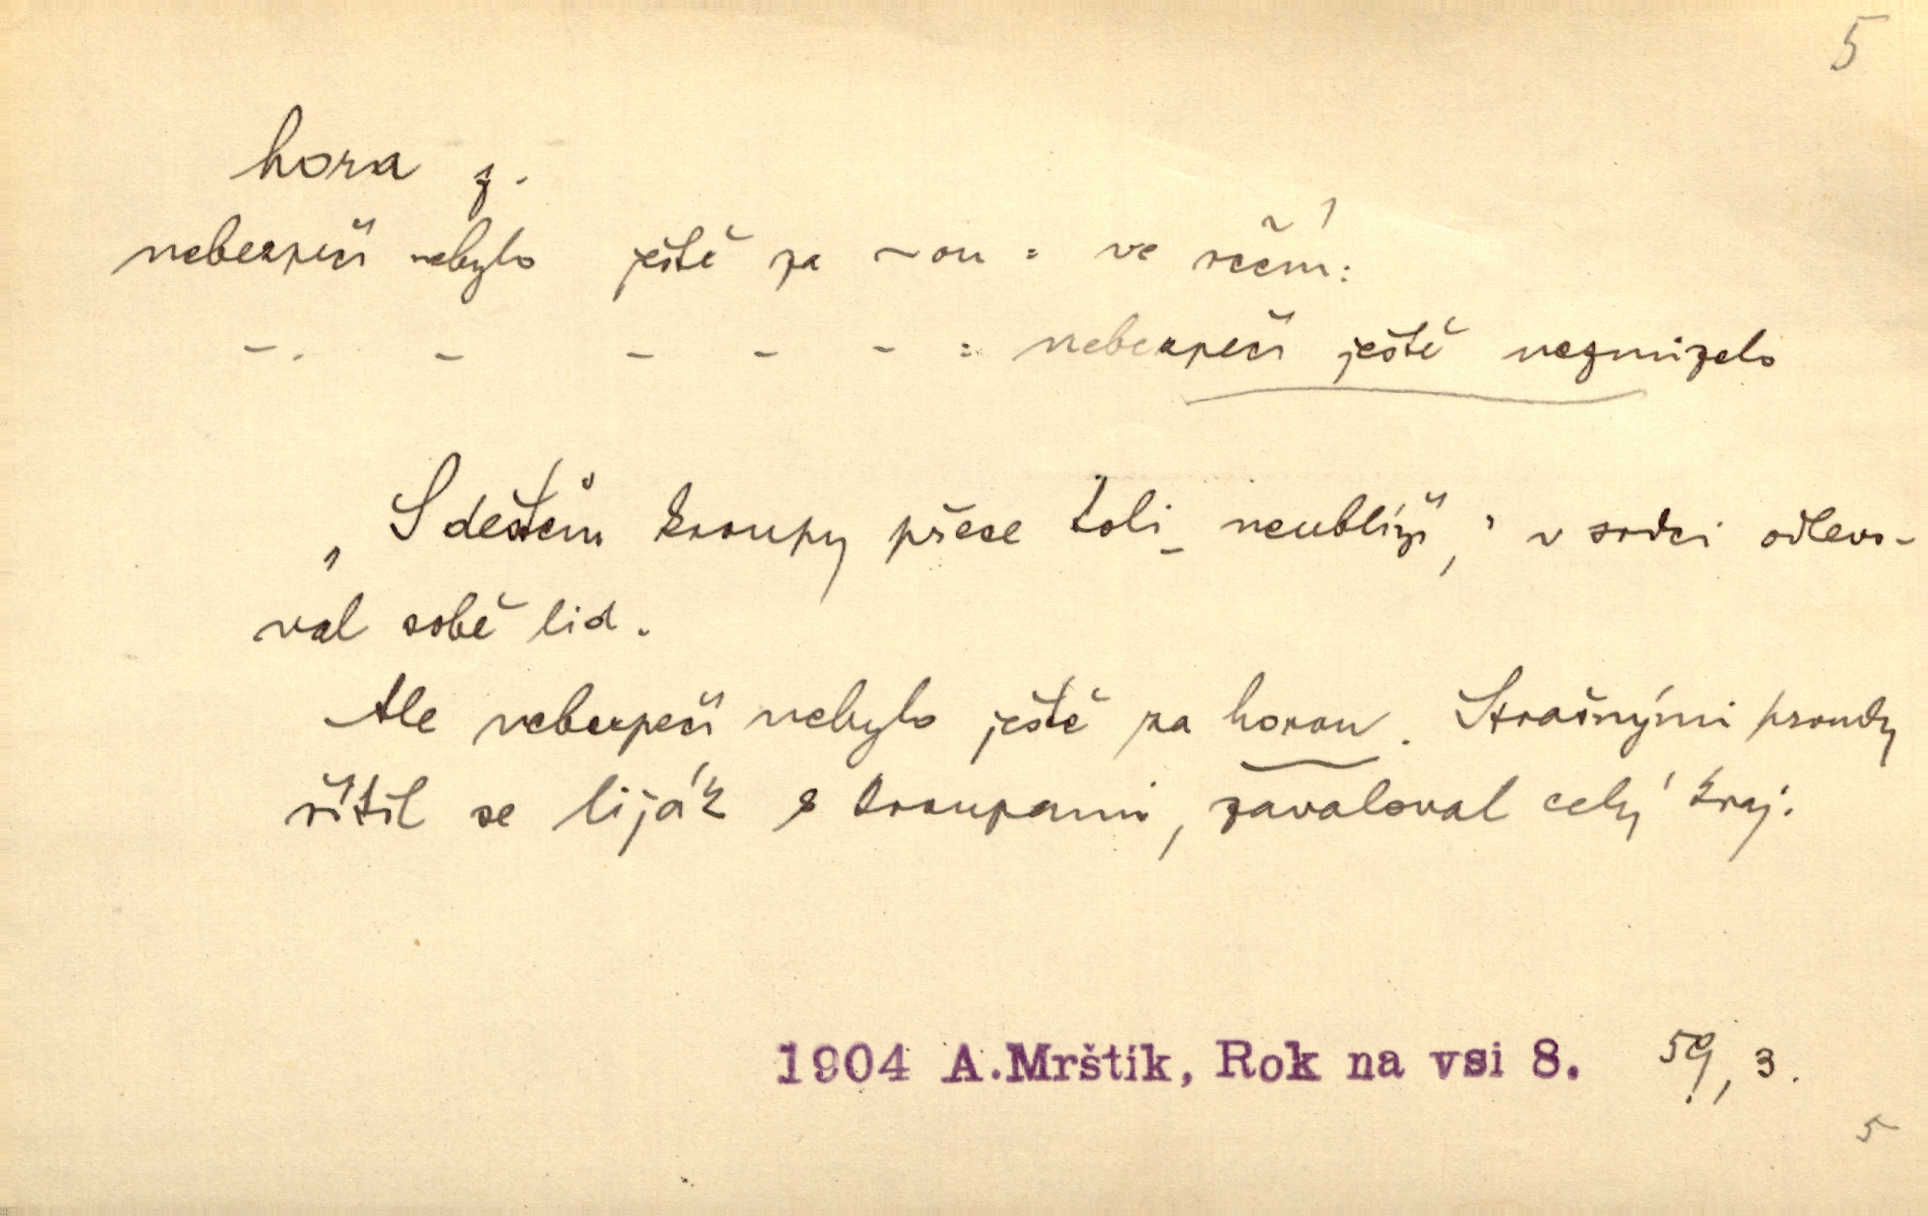 5
hora ž.
nebezpečí nebylo ještě za ~ou : ve rčení:
–. – – – – : nebezpečí ještě nezmizelo
„S deštěm kroupy přece toli_ neublíží," v srdci odlevo-
val sobě lid.
Ale nebezpečí nebylo ještě za horou. Strašnými proudy
řítil se liják s kroupami, zavaloval celý kraj.
1904 A.Mrštík, Rok na vsi 8. 59, 3.
5